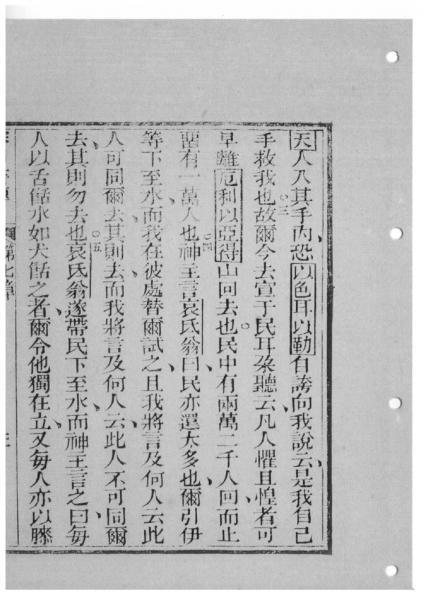 天人入其手內恐以色耳以勒自誇向我說云是我自己
手救我也故爾今去宣于民耳朶聽云凡人懼且惶者可
早離厄利以亞得山回去也民中有兩萬二千人回而止
畱有一萬人也神主言㠯哀氏翁曰民亦還太多也爾引伊
等下至水而我在彼處替爾試之且我將言及何人云此
人可同爾去其則去而我將言及何人云此人不可同爾
去其則勿去也哀氏翁遂帶民下至水而神主言之曰每
人以舌餂水如犬餂之者爾令他獨在立又每人亦以膝
第七章